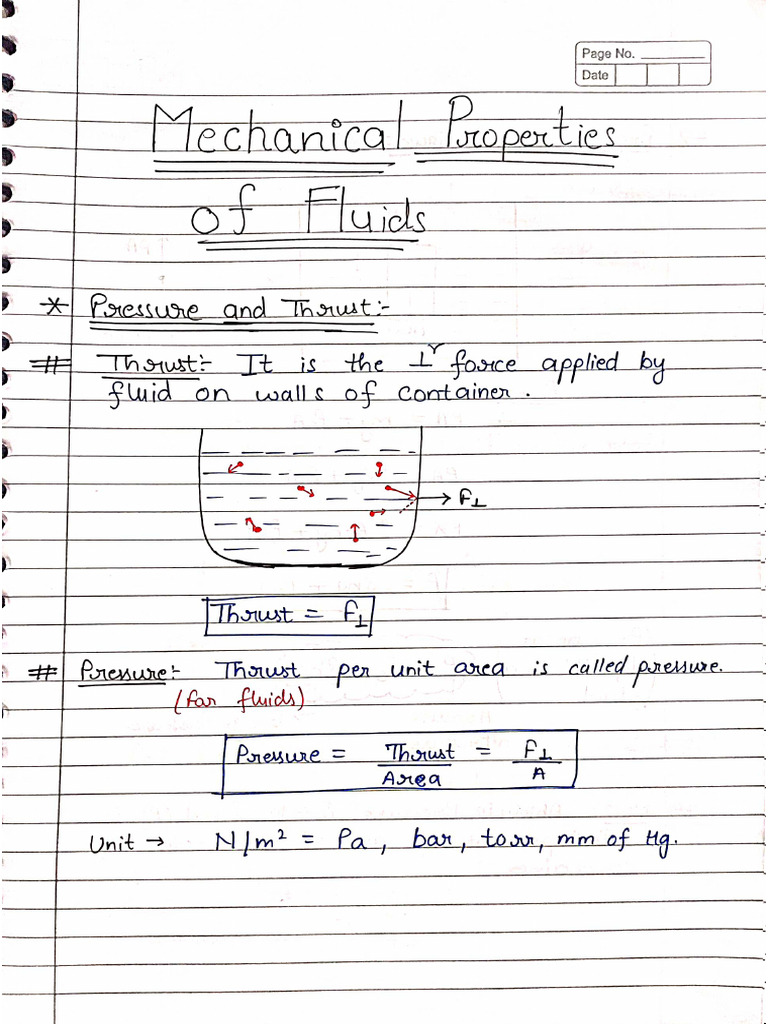 Page No.
Date
Mechanical Properties
of Fluids
* Pressure and Thrust:-
# Thrust:- It is the ⊥ʳ force applied by
fluid on walls of container.
F⊥
Thrust = F⊥
# Pressure:- Thrust per unit area is called pressure.
(for fluids)
Pressure = Thrust/Area = F⊥/A
Unit → N/m² = Pa, bar, torr, mm of Hg.